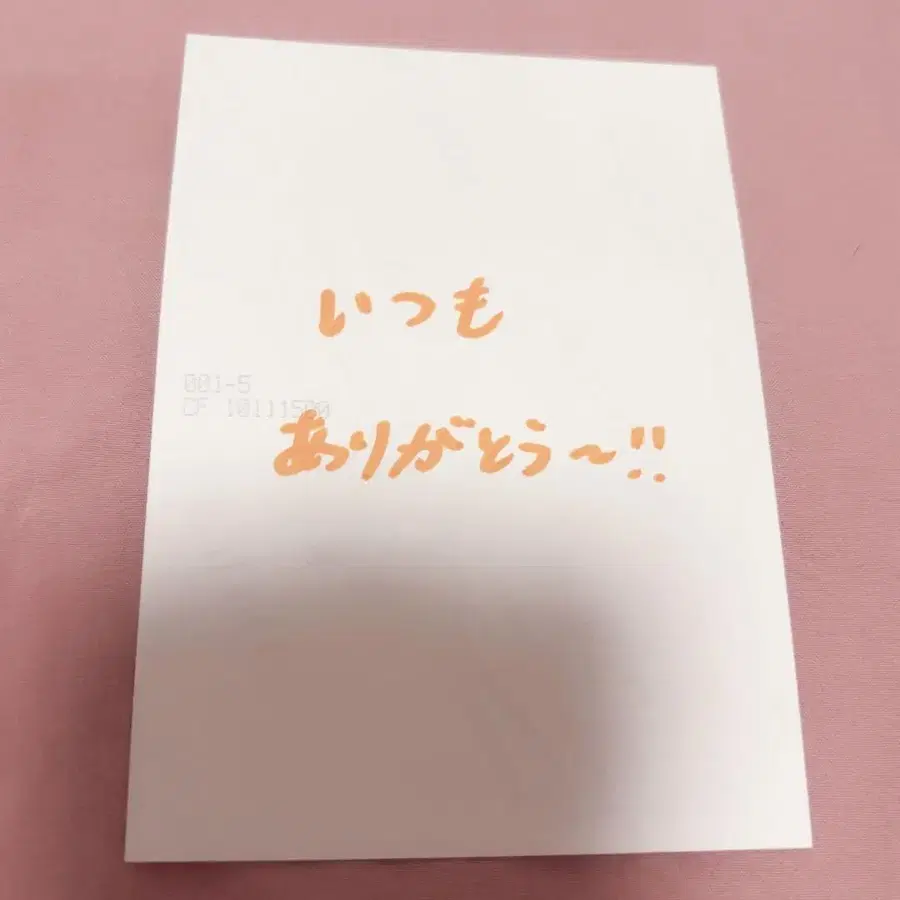 いつも
001-5
CF 10111500
ありがとう〜!!